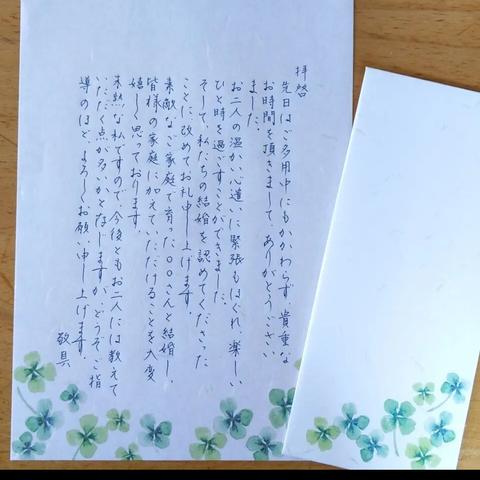 拝啓
先日はご多用中にもかかわらず、貴重な
お時間を頂きまして、ありがとうござい
ました。
お二人の温かい心遣いに緊張もほぐれ、楽しい
ひと時を過ごすことができました。
そして、私たちの結婚を認めてくださった
ことに、改めてお礼申し上げます。
素敵なご家庭で育った○○さんと結婚し、
皆様の家庭に加えていただけることを大変
嬉しく思っております。
未熟な私ですので、今後ともお二人には教えて
いただく点が多いかと存じますが、どうぞご指
導のほど、よろしくお願い申し上げます。
敬具